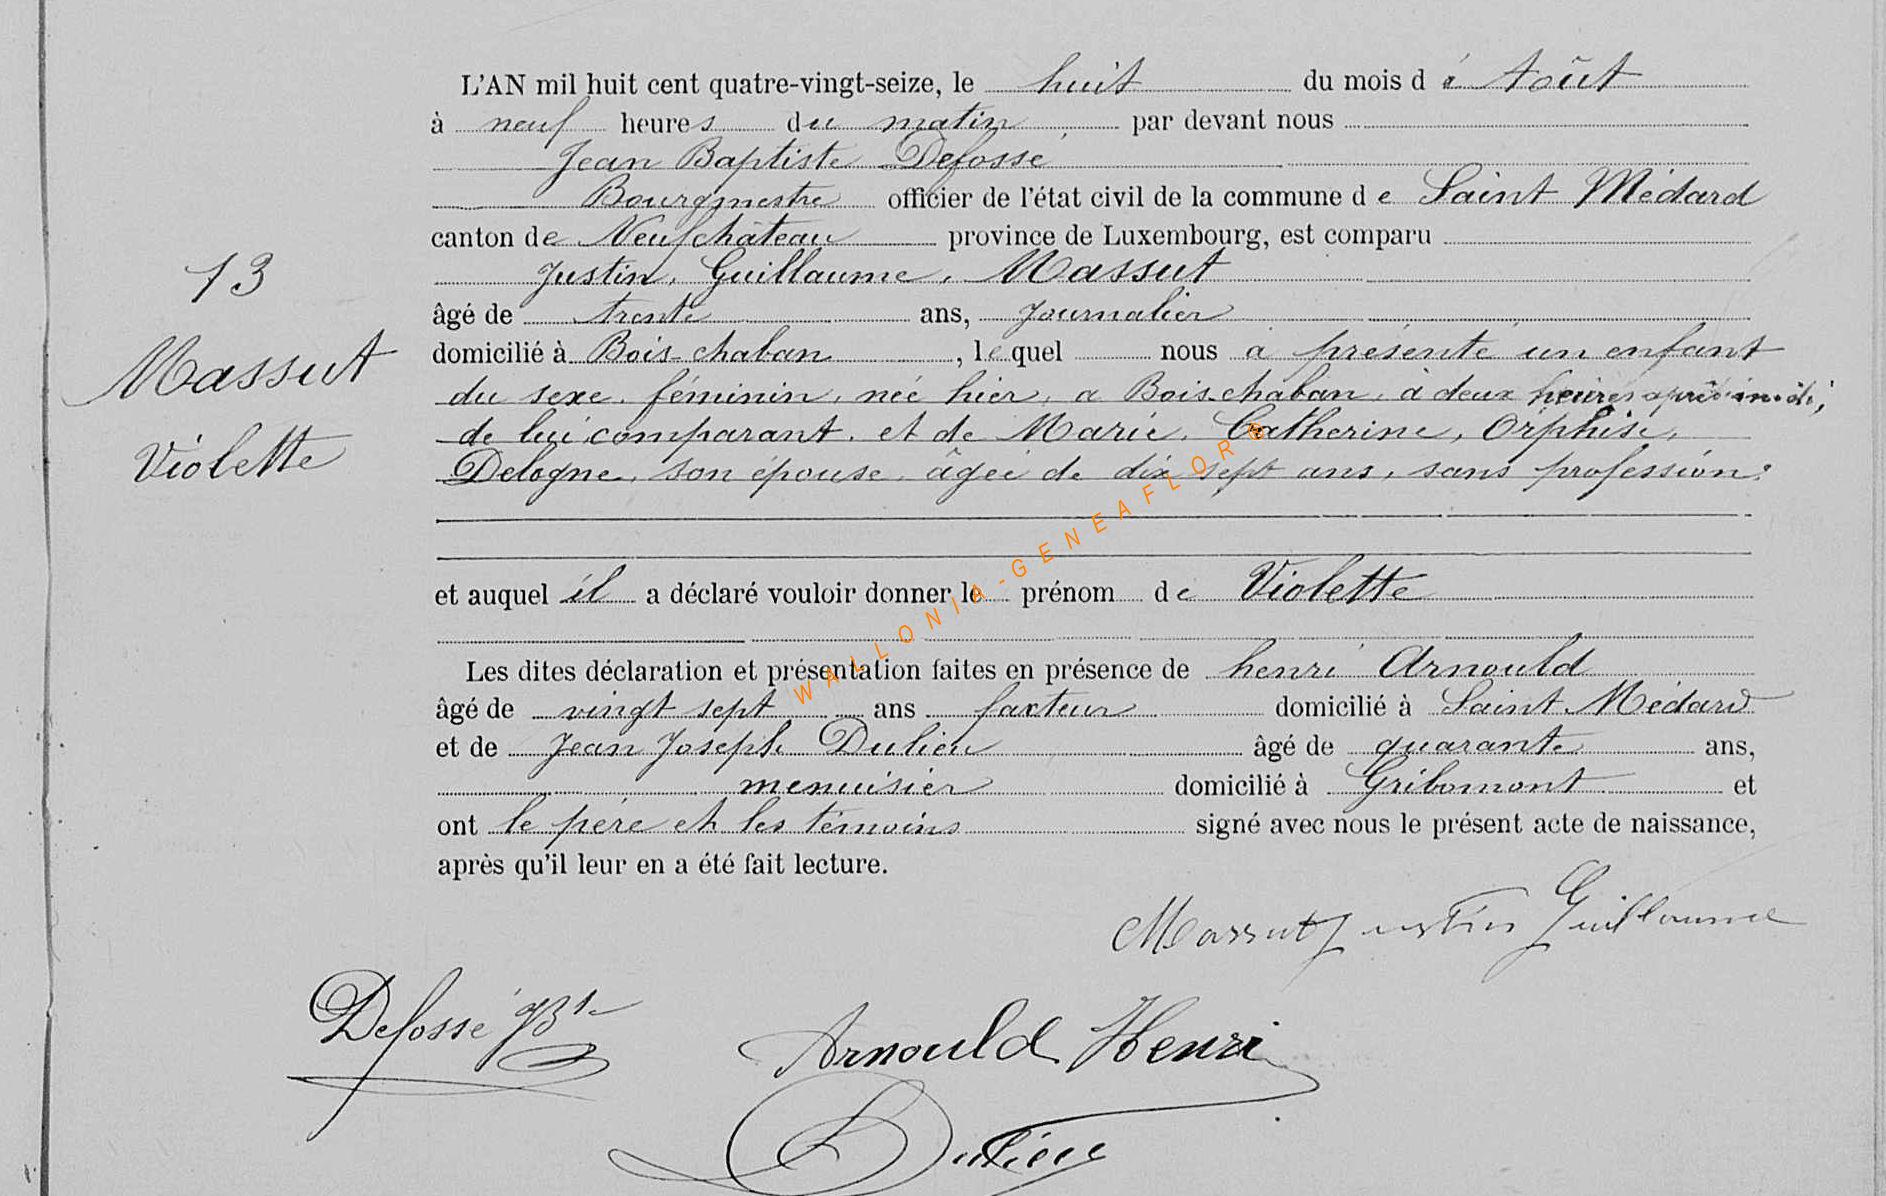 L'AN mil huit cent quatre-vingt-seize, le huit du mois d'é Août
à neuf heures du matin, par devant nous
Jean Baptiste Defossé
Bourgmestre officier de l'état civil de la commune de Saint Médard
canton de Neufchâteau province de Luxembourg, est comparu
Justin, Guillaume, Massut
âgé de trente ans, journalier
domicilié à Bois-chaban, lequel nous a présenté un enfant
du sexe féminin, née hier, a Bois-chaban, à deux heures après-midi,
de lui comparant, et de Marie, Catherine, Orphise,
Delogne, son épouse, âgée de dix sept ans, sans profession
et auquel il a déclaré vouloir donner le prénom de Violette
Les dites déclaration et présentation faites en présence de henri Arnould
âgé de vingt sept ans facteur domicilié à Saint Médard
et de Jean Joseph Dulieu âgé de quarante ans,
menuisier domicilié à Gribomont et
ont le père et les témoins signé avec nous le présent acte de naissance,
après qu'il leur en a été fait lecture.
13
Massut
Violette
Massut Justin Guillaume
Defossé JBt
Arnould Henri
Dulieu
WALLONIA-GENEAFLOR®